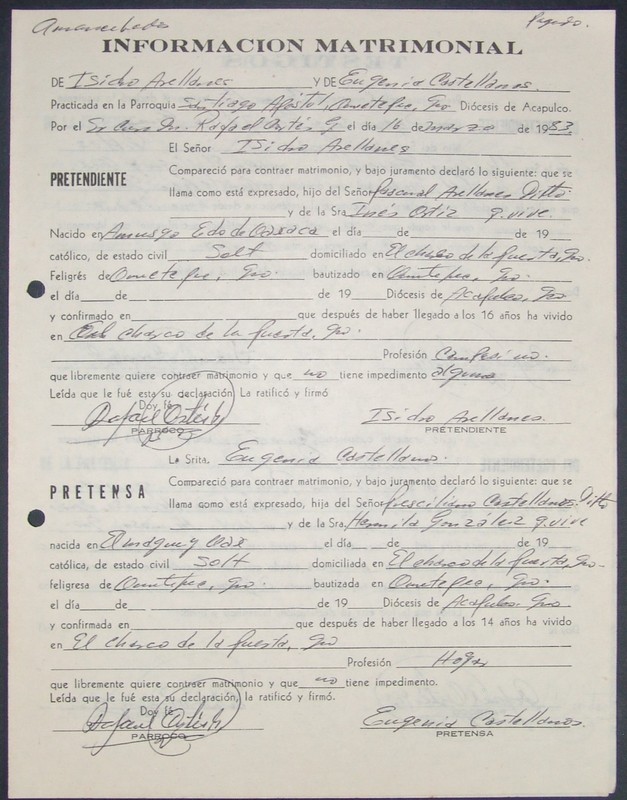 Amancebados Pagado.
INFORMACION MATRIMONIAL
DE Isidro Arellanes Y DE Eugenia Castellanos.
Practicada en la Parroquia Santiago Apóstol, Ometepec, Gro. Diócesis de Acapulco.
Por el Sr. Cura Dn. Rafael Cortés G. el día 16 de marzo de 1983.
El Señor Isidro Arellanes
PRETENDIENTE
Compareció para contraer matrimonio, y bajo juramento declaró lo siguiente: que se
llama como está expresado, hijo del Señor Pascual Arellanes Ditto.
y de la Sra. Inés Ortiz q. vive
Nacido en Amusgo Edo de Oaxaca el día de de 19
católico, de estado civil Solt domiciliado en El charco de la puerta, Gro.
Feligrés de Ometepec, Gro. bautizado en Ometepec, Gro.
el día de de 19 Diócesis de Acapulco, Gro
y confirmado en que después de haber llegado a los 16 años ha vivido
en charco de la puerta, Gro.
Profesión Campesino.
que libremente quiere contraer matrimonio y que no tiene impedimento alguno
Leída que le fué esta su declaración. La ratificó y firmó
Doy fé
Rafael Cortés G Isidro Arellanes.
PARROCO PRETENDIENTE
La Srita. Eugenia Castellanos.
PRETENSA
Compareció para contraer matrimonio, y bajo juramento declaró lo siguiente: que se
llama como está expresado, hija del Señor Presciliano Castellanos Ditto
y de la Sra. Hermila González q. vive
nacida en El maguey Oax el día de de 19
católica, de estado civil Solt domiciliada en El charco de la puerta, Gro-
feligresa de Ometepec, Gro. bautizada en Ometepec, Gro.
el día de de 19 Diócesis de Acapulco Gro
y confirmada en que después de haber llegado a los 14 años ha vivido
en El charco de la puerta, Gro
Profesión Hogar
que libremente quiere contraer matrimonio y que no tiene impedimento.
Leída que le fué esta su declaración, la ratificó y firmó.
Doy fé
Rafael Cortés G Eugenia Castellanos.
PARROCO PRETENSA